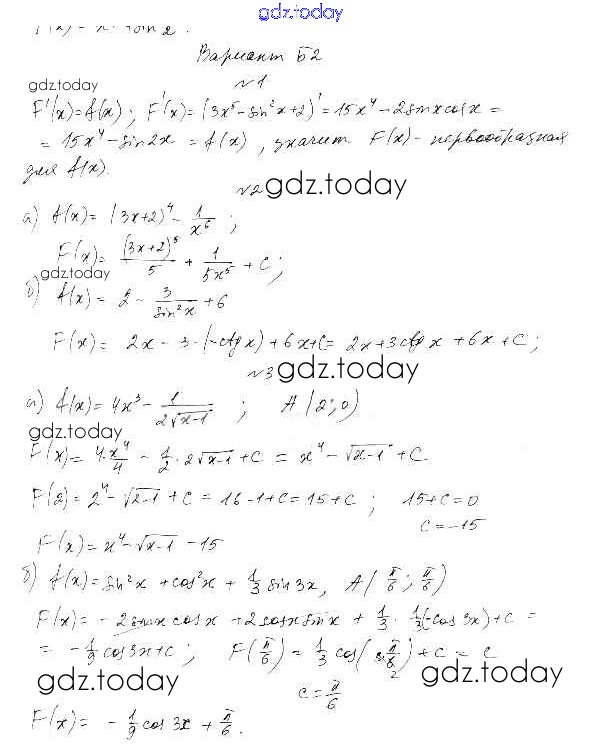 gdz.today
Вариант Б2
gdz.today
№1
F'(x)=f(x); F'(x)=(3x⁵-sin²x+2)'=15x⁴-2sinxcosx=
=15x⁴-sin2x=f(x), значит F(x)-первообразная
для f(x).
№2 gdz.today
а) f(x)=(3x+2)⁴-1/x⁶;
F(x)=(3x+2)⁵/5+1/5x⁵+C;
gdz.today
б) f(x)=2-3/sin²x+6
F(x)=2x-3·(-ctgx)+6x+C=2x+3ctgx+6x+C;
№3 gdz.today
а) f(x)=4x³-1/2√x-1; A(2;0)
gdz.today
F(x)=4·x⁴/4-1/2·2√x-1+C=x⁴-√x-1+C
F(2)=2⁴-√2-1+C=16-1+C=15+C; 15+C=0
C=-15
F(x)=x⁴-√x-1-15
б) f(x)=sin²x+cos²x+1/3sin3x, A(π/6;π/6)
F(x)=-2sinxcosx+2cosxsinx+1/3·1/3(-cos3x)+C=
=-1/9cos3x+C; F(π/6)=1/3cos(π/2)+C=C
gdz.today
C=π/6
gdz.today
F(x)=-1/9cos3x+π/6.